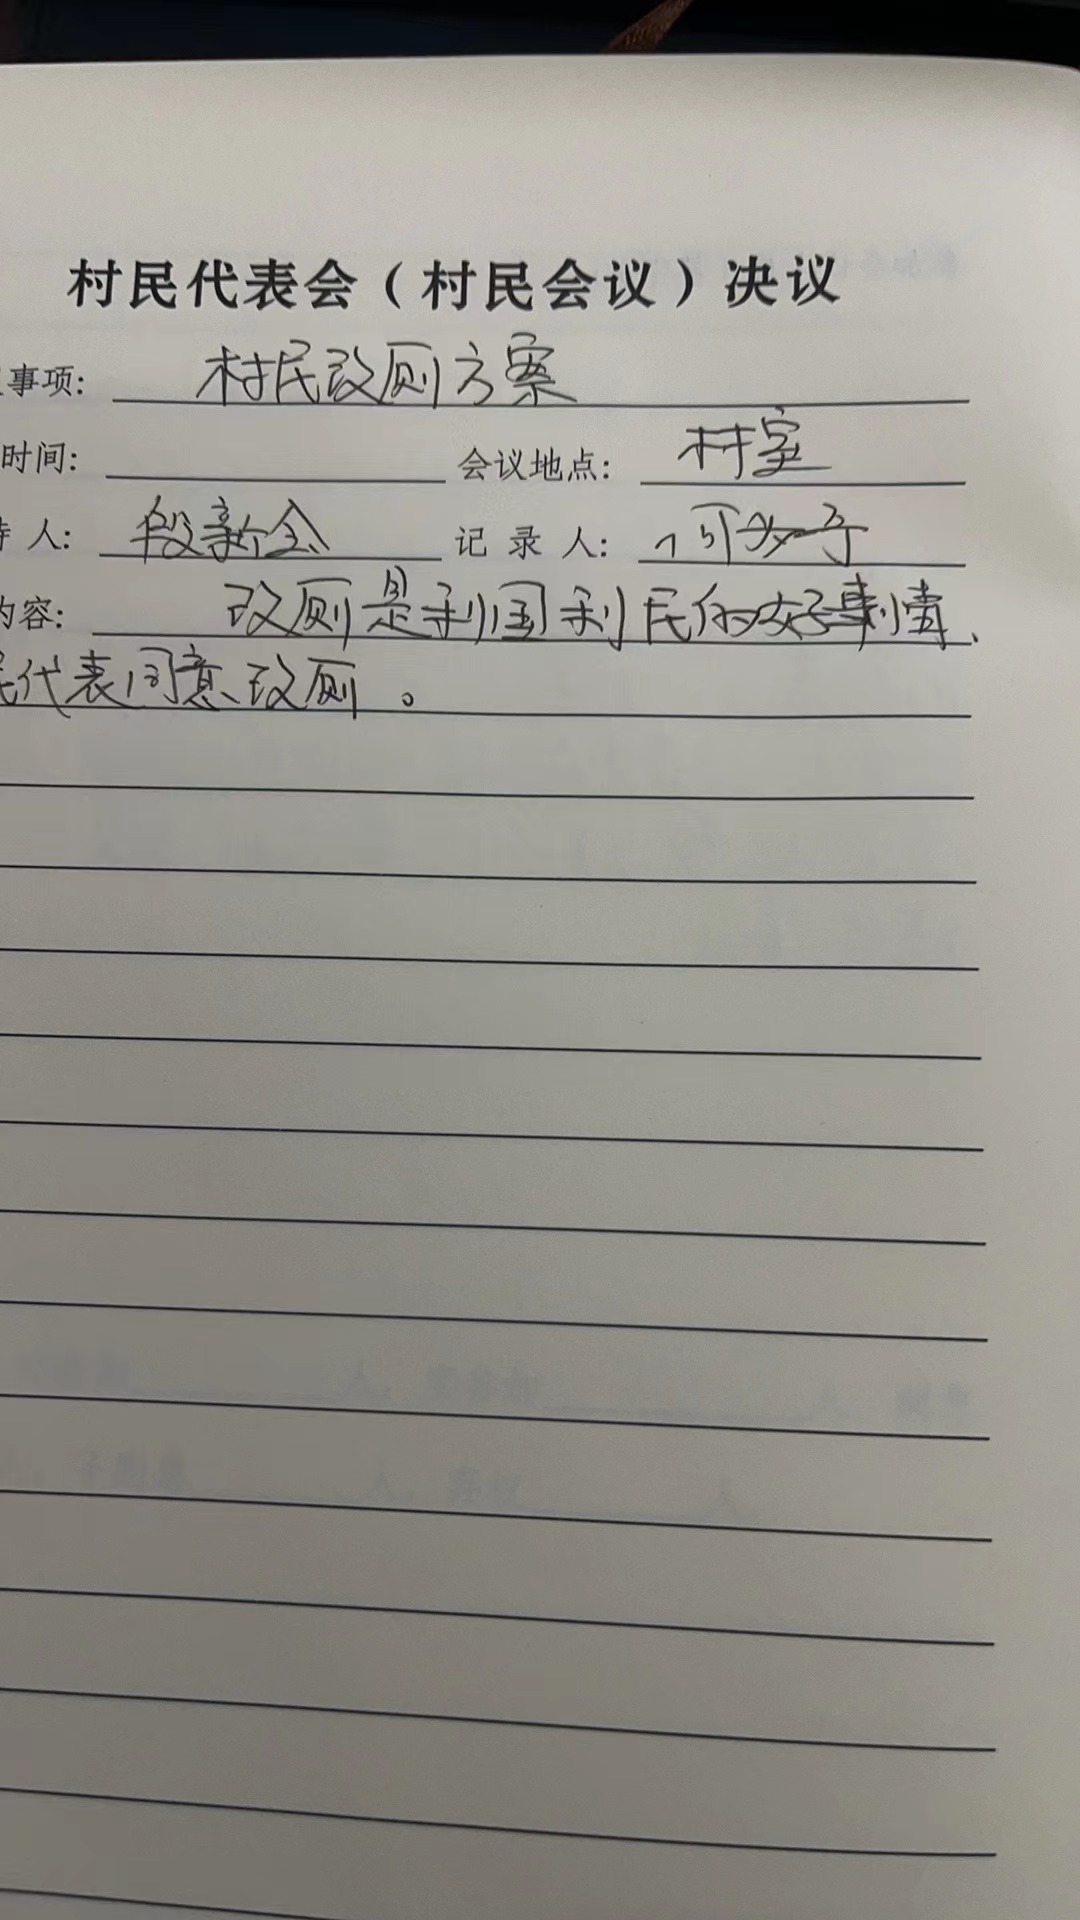 村民代表会（村民会议）决议
事项: 村民改厕方案
时间: 会议地点: 村室
人: 段新全 记录人:
内容: 改厕是利国利民的好事情、
民代表同意改厕。